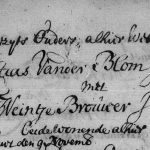 zyts Ouders, alhier
tius Vander Blom
met
Neintje Brouwer J
beide woonende alhier
den 9 Novemb